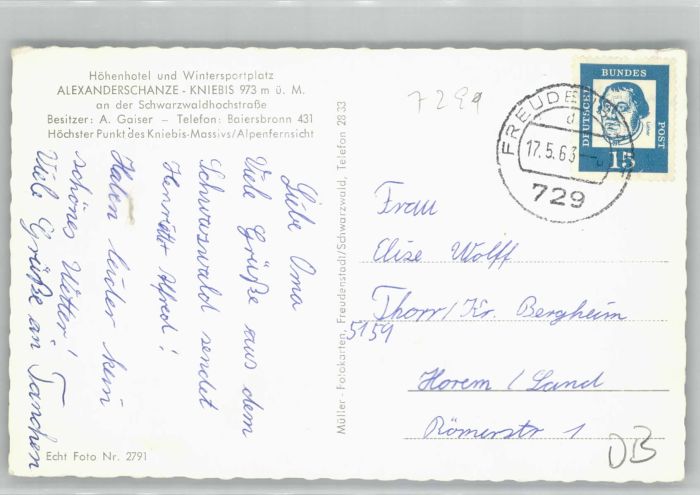 Höhenhotel und Wintersportplatz
ALEXANDERSCHANZE - KNIEBIS 973 m ü. M.
an der Schwarzwaldhochstraße
Besitzer: A. Gaiser - Telefon: Baiersbronn 431
Höchster Punkt des Kniebis-Massivs/Alpenfernsicht
Liebe Oma
Viele Grüße aus dem
Schwarzwald sendet
Henriette Alfred!
Haben leider kein
schönes Wetter!
Viele Grüße an Tanchen
Echt Foto Nr. 2791
Müller - Fotokarten, Freudenstadt/Schwarzwald, Telefon 28 33
7299
DEUTSCHE
BUNDES
POST
Luther
15
FREUDE
d
17.5.63
729
Frau
Elise Wolff
Thorr/Kr. Bergheim
5159
Horem / Land
Römerstr 1
DB